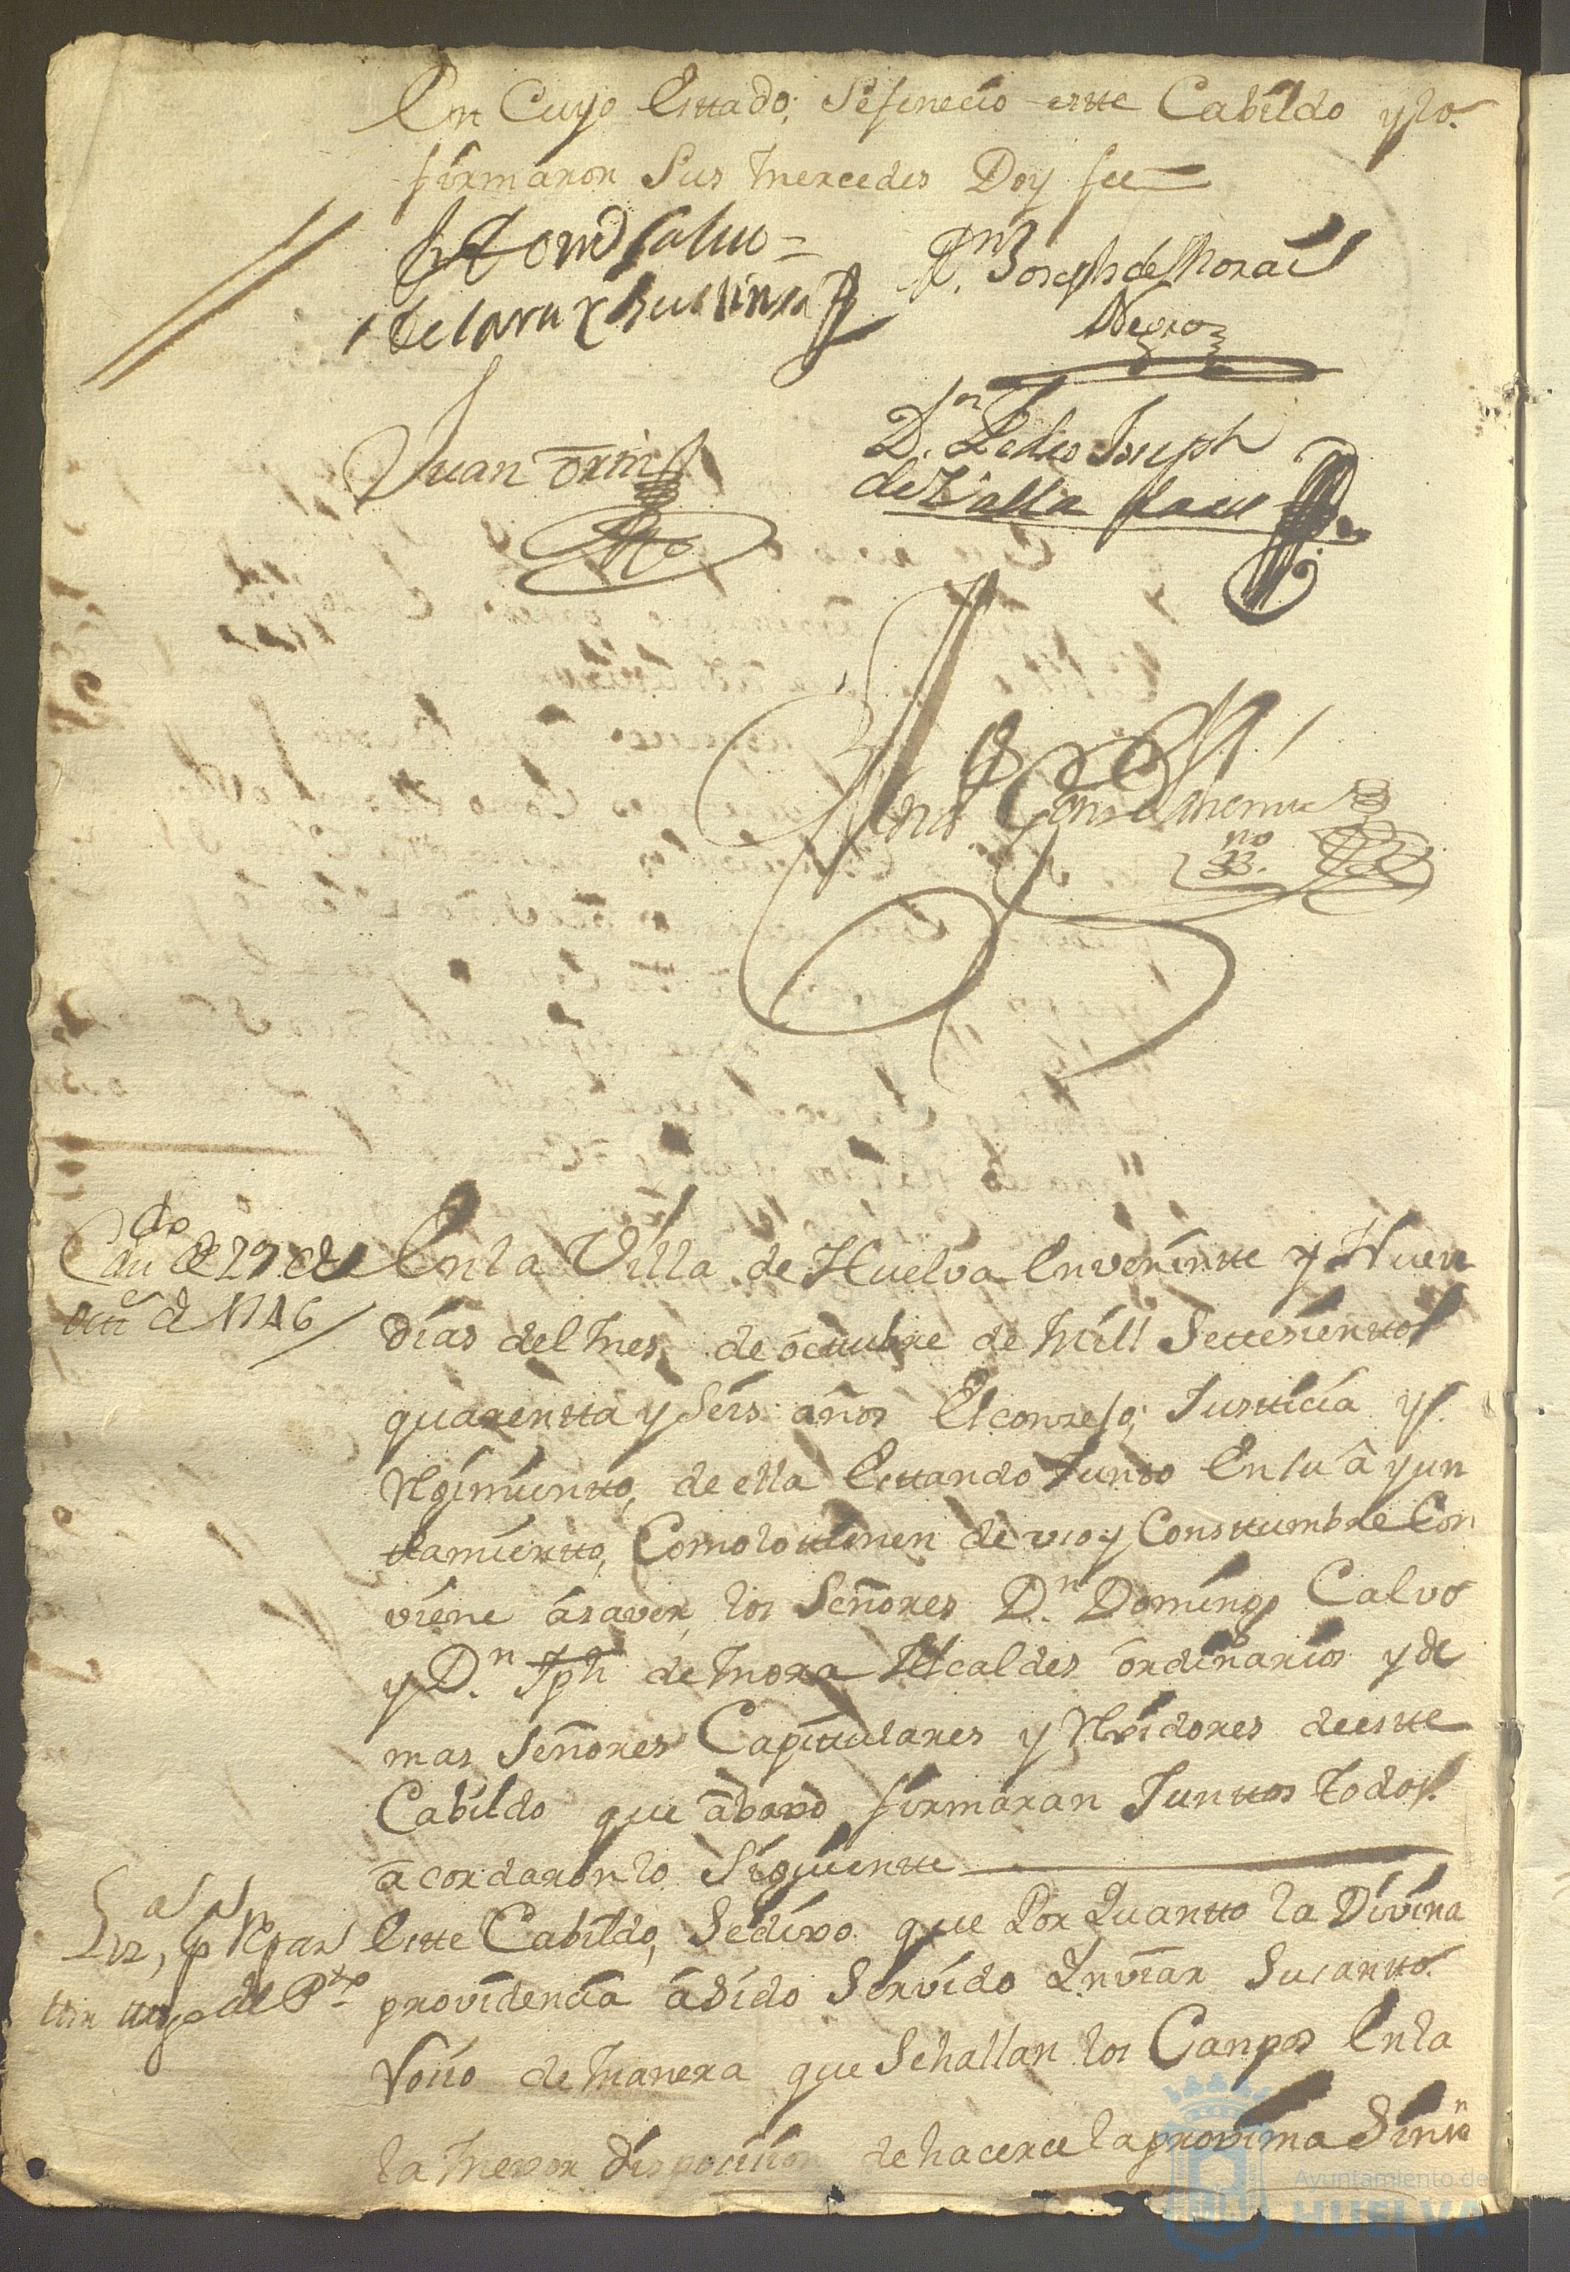 En Cuyo Esttado, Sefinecio estte Cabildo ylo
firmaron Sus mercedes Doy fee
Dn Domo Calvo =
de lara y Bustinza
Dn. Joseph de Mora
Negro
Juan
Dn. Pedro Joseph
de Villa
no
Cavdo de 29 de
octte de 1746
En la Villa de Huelva En veintte y Nueve
dias del mes de octtubre de mill Settesienttos
quarentta y seis años El consejo, Justticia y
Rejimientto, de ella Esttando Juntto En su ayun
ttamientto, Como lo ttienen de uso y Consttumbre Con
viene a saver, los Señores Dn. Domingo Calvo
y Dn. Jph de mora Alcaldes ordinarios y de
mas Señores Capittulares y Rexidores de estte
Cabildo que abaxo firmaran Junttos todos
acordaron lo siguientte
Estte Cabildo, Se dixo que Por Quantto la Divina
providencia a Sido Servido Inviar Su santto
Rosio de manera que Se hallan los Canpos En la
la mexor disposision de hacerce la provima Simn
del Pto
Ayuntamiento de
HUELVA